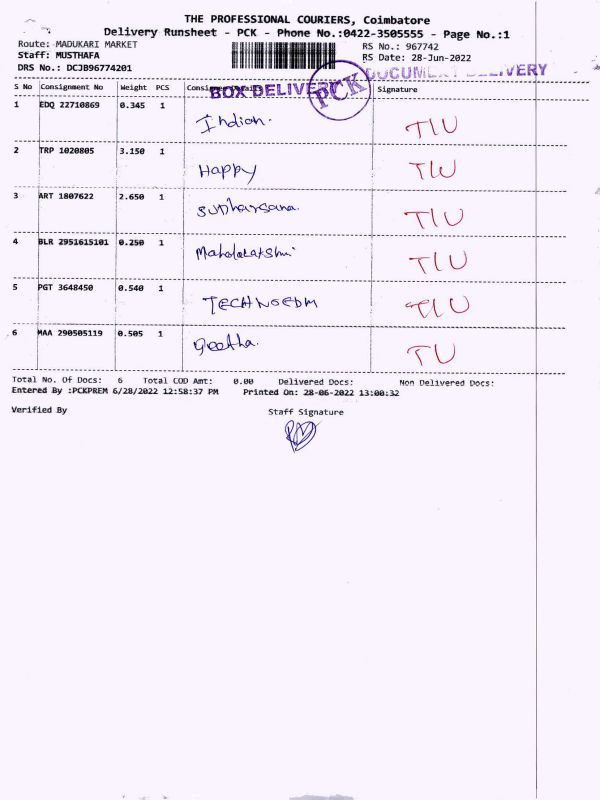 THE PROFESSIONAL COURIERS, Coimbatore
Delivery Runsheet - PCK - Phone No.:0422-3505555 - Page No.:1
Route: MADUKARI MARKET RS No.: 967742
Staff: MUSTHAFA RS Date: 28-Jun-2022
DRS No.: DCJB96774201 DOCUMENT DELIVERY
S No Consignment No Weight PCS Consignee Details Signature
BOX DELIVERY PCK
1 EDQ 22710869 0.345 1
Indian. TIU
2 TRP 1020805 3.150 1
Happy TIU
3 ART 1807622 2.650 1
Sudharsana. TIU
4 BLR 2951615101 0.250 1
Mahalakshmi TIU
5 PGT 3648450 0.540 1
TECHNOEDM TIU
6 MAA 290505119 0.505 1
Geetha. TU
Total No. Of Docs: 6 Total COD Amt: 0.00 Delivered Docs: Non Delivered Docs:
Entered By :PCKPREM 6/28/2022 12:58:37 PM Printed On: 28-06-2022 13:00:32
Verified By Staff Signature